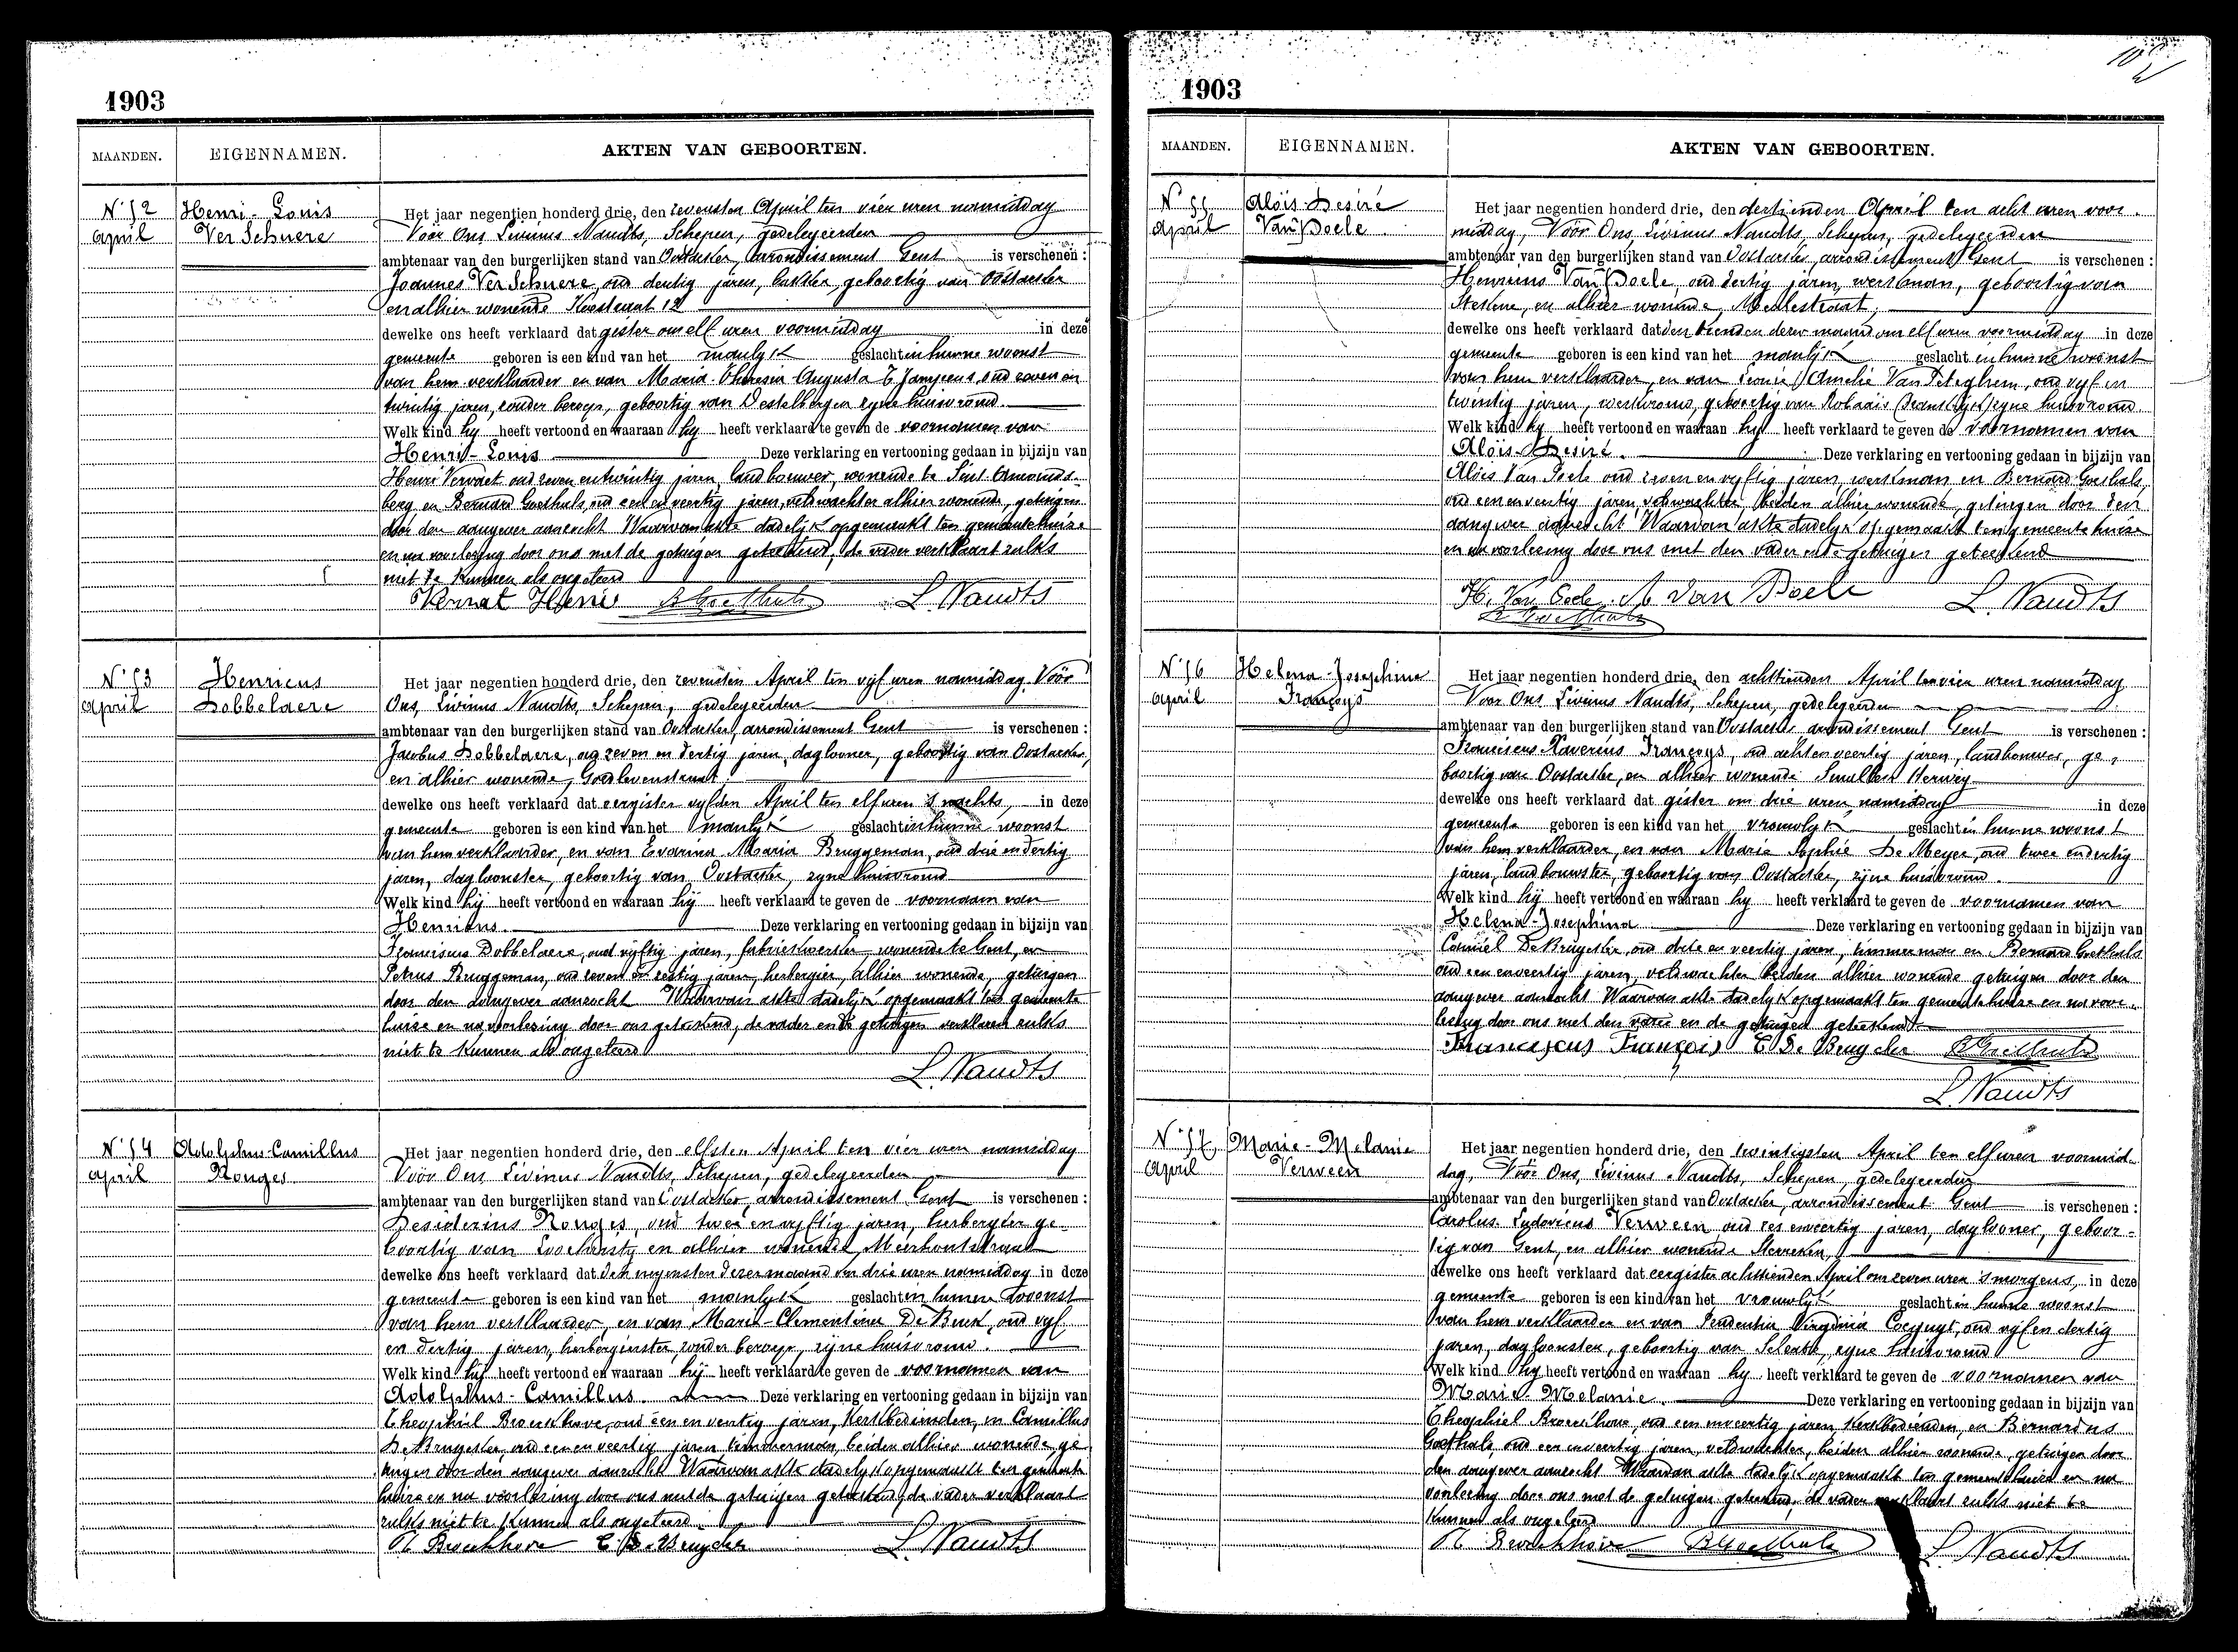 1903
MAANDEN. EIGENNAMEN. AKTEN VAN GEBOORTEN.
N° 52
April
Henri-Louis
Ver Schuere
Het jaar negentien honderd drie, den zevensten April ten vier uren namiddag
Vóór Ons Livinus Naudts, Schepen, gedelegeerden
ambtenaar van den burgerlijken stand van Oostacker, arrondissement Gent is verschenen :
Joannes Ver Schuere, oud dertig jaren, bakker, geboortig van Oostacker
en alhier wonende 12
dewelke ons heeft verklaard dat gister om elf uren voormiddag in deze
gemeente geboren is een kind van het manlyk geslacht in hunne woonst
van hem verklaarder en van Maria Theresia Augusta oud zeven en
twintig jaren, zonder beroep, geboortig van Destelbergen zyne huisvrouw.
Welk kind hy heeft vertoond en waaraan hy heeft verklaard te geven de voornamen van
Henri-Louis Deze verklaring en vertooning gedaan in bijzijn van
Henri Vervaet oud zeven en twintig jaren, landbouwer, wonende te Sint Amands-
berg en Bernard Goethals, oud een en veertig jaren, veldwachter alhier wonende, getuigen
door den aangever aanzocht Waarvan akte dadelyk opgemaakt ten gemeentehuize
en na voorlezing door ons met de getuigen geteekend, de vader verklaart zulks
niet te kunnen als ongeleerd
Vervat Henri B Goethals L. Naudts
N° 53
April
Henricus
Dobbelaere
Het jaar negentien honderd drie, den zevensten April ten vyf uren namiddag. Vóór
Ons, Livinus Naudts, Schepen, gedelegeerden
ambtenaar van den burgerlijken stand van Oostacker, arrondissement Gent is verschenen :
Jacobus Dobbelaere, oud zeven en dertig jaren, daglooner, geboortig van Oostacker,
en alhier wonende, Goedlevenstraat
dewelke ons heeft verklaard dat eergister vyfden April ten elf uren 's nachts, in deze
gemeente geboren is een kind van het manlyk geslacht in hunne woonst
van hem verklaarder, en van Evarina Maria Bruggeman, oud drie en dertig
jaren, dagloonster, geboortig van Oostacker, zyne huisvrouw
Welk kind hij heeft vertoond en waaraan hij heeft verklaard te geven de voornaam van
Henricus. Deze verklaring en vertooning gedaan in bijzijn van
Franciscus Dobbelaere, oud vyftig jaren, fabriekwerker, wonende te Gent, en
Petrus Bruggeman, oud zeven en zestig jaren, herbergier, alhier wonende, getuigen
door den aangever aanzocht Waarvan akte dadelyk opgemaakt ten gemeente
huize en na voorlezing door ons geteekend, de vader en de getuigen verklaren zulks
niet te kunnen als ongeleerd
L. Naudts
N° 54
April
Adolphus-Camillus
Ronges
Het jaar negentien honderd drie, den elfsten April ten vier uren namiddag
Vóór Ons Livinus Naudts, Schepen, gedelegeerden
ambtenaar van den burgerlijken stand van Oostacker, arrondissement Gent is verschenen :
Desiderius Ronges, oud twee en vyftig jaren, herbergier ge-
boortig van Loochristy en alhier wonende Meerhoutstraat
dewelke ons heeft verklaard dat den negensten dezer maand om drie uren namiddag in deze
gemeente geboren is een kind van het manlyk geslacht in hunen woonst
van hem verklaarder, en van Marie-Clementina De Buck, oud vyf
en dertig jaren, herbergierster, zonder beroep, zijne huisvrouw.
Welk kind hij heeft vertoond en waaraan hij heeft verklaard te geven de voornamen van
Adolphus-Camillus. Deze verklaring en vertooning gedaan in bijzijn van
Theophiel Broeckhove, oud een en veertig jaren, kerkbedienden, en Camillus
De Bruycker, oud een en veertig jaren timmerman, beiden alhier wonende ge
tuigen door den aangever aanzocht Waarvan akte dadelyk opgemaakt ten gemeente
huize en na voorlezing door ons met de getuigen geteekend, de vader verklaart
zulks niet te kunnen als ongeleerd.
Th Broeckhove C. De Bruycker L. Naudts
1903
MAANDEN. EIGENNAMEN. AKTEN VAN GEBOORTEN.
N° 55
April
Aloïs Desiré
Van Poele
Het jaar negentien honderd drie, den dertienden April ten acht uren voor-
middag, Vóór Ons, Livinus Naudts, Schepen, gedelegeerden
ambtenaar van den burgerlijken stand van Oostacker, arrondissement Gent is verschenen :
Henricus Van Poele, oud dertig jaren, werkman, geboortig van
Stekene, en alhier wonende, Meulestraat,
dewelke ons heeft verklaard dat den tienden dezer maand om elf uren voormiddag in deze
gemeente geboren is een kind van het manlyk geslacht in hunne woonst
van hem verklaarder, en van Leonie Amelie Van Peteghem, oud vyf en
twintig jaren, werkvrouw, geboortig van Robaais (Frankryk) zyne huisvrouw
Welk kind hy heeft vertoond en waaraan hy heeft verklaard te geven de voornamen van
Aloïs-Desiré. Deze verklaring en vertooning gedaan in bijzijn van
Aloïs Van Poele oud zeven en vyftig jaren, werkman en Bernard Goethals,
oud een en veertig jaren veldwachter, beiden alhier wonende, getuigen door den
aangever aanzocht Waarvan akte dadelyk opgemaakt ten gemeente huize
en na voorlezing door ons met den vader en de getuigen geteekend
H. Van Poele A Van Poele L. Naudts
B Goethals
N° 56
April
Helena-Josephina
Françoys
Het jaar negentien honderd drie, den achttienden April ten vier uren namiddag
Voor Ons Livinus Naudts, Schepen, gedelegeerden
ambtenaar van den burgerlijken stand van Oostacker arrondissement Gent is verschenen :
Franciscus Xaverius Françoys, oud acht en veertig jaren, landbouwer, ge-
boortig van Oostacker, en alhier wonende
dewelke ons heeft verklaard dat gister om drie uren namiddag in deze
gemeente geboren is een kind van het vrouwlyk geslacht in hunne woonst
van hem verklaarder, en van Marie Sophie De Meyer, oud twee en dertig
jaren, landbouwster, geboortig van Oostacker, zijne huisvrouw.
Welk kind hij heeft vertoond en waaraan hy heeft verklaard te geven de voornamen van
Helena-Josephina Deze verklaring en vertooning gedaan in bijzijn van
Camiel De Bruycker, oud en veertig jaren, timmerman en Bernard Goethals
oud een en veertig jaren, veldwachter beiden alhier wonende getuigen door den
aangever aanzocht Waarvan akte dadelyk opgemaakt ten gemeentehuize en na voor-
lezing door ons met den vader en de getuigen geteekend
Franciscus François C De Bruycker B Goethals
L. Naudts
N° 57
April
Marie-Melanie
Verween
Het jaar negentien honderd drie, den twintigsten April ten elf uren voormid-
dag, Vóór Ons, Livinus Naudts, Schepen, gedelegeerden
ambtenaar van den burgerlijken stand van Oostacker, arrondissement Gent is verschenen :
Carolus Ludovicus Verween, oud zes en veertig jaren, daglooner, geboor-
tig van Gent, en alhier wonende
dewelke ons heeft verklaard dat eergister achttienden April om zeven uren 's morgens, in deze
gemeente geboren is een kind van het vrouwlyk geslacht in hunne woonst
van hem verklaarder en van Prudentia Virginia oud vijf en dertig
jaren, dagloonster, geboortig van zyne huisvrouw
Welk kind hy heeft vertoond en waaraan hy heeft verklaard te geven de voornamen van
Marie Melanie. Deze verklaring en vertooning gedaan in bijzijn van
Theophiel Broeckhove, oud een en veertig jaren, kerkbedienden, en Bernardus
Goethals oud een en veertig jaren, veldwachter, beiden alhier wonende, getuigen door
den aangever aanzocht Waarvan akte dadelyk opgemaakt ten gemeentehuize en na
voorlezing door ons met de getuigen geteekend, de vader verklaart zulks niet te
kunnen als ongeleerd
Th Broeckhove B Goethals L. Naudts